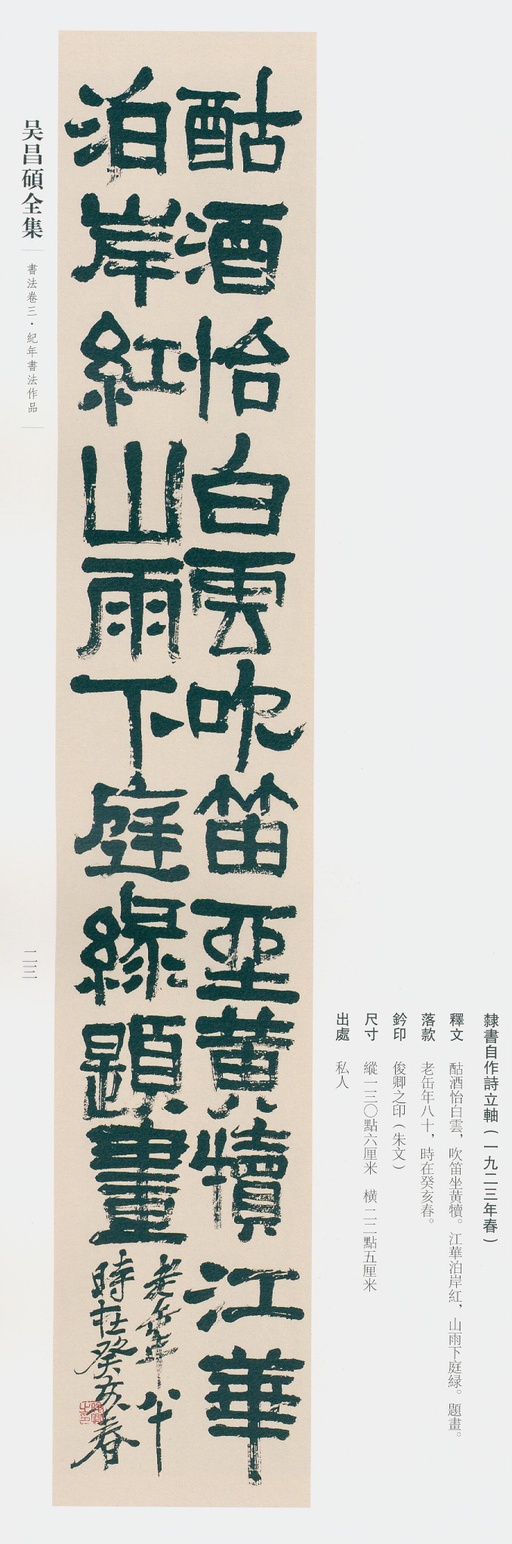 隸書自作詩立軸（一九二三年春）
釋文 酤酒怡白雲，吹笛坐黃犢。江華泊岸紅，山雨下庭緑。題畫。
落款 老缶年八十，時在癸亥春。
鈐印 俊卿之印（朱文）
尺寸 縱一三〇點六厘米 橫二二點五厘米
出處 私人
酤酒怡白雲吹笛坐黃犢江華
泊岸紅山雨下庭緑題畫
老缶年八十
時在癸亥春
吴昌碩全集
書法卷三·紀年書法作品
二三三